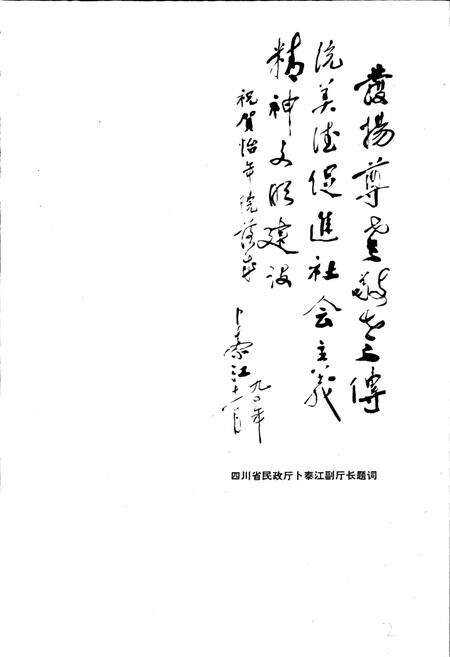 發揚尊老敬老之傳
统美德促進社会主義
精神文明建设
祝賀怡年院落成
卜泰江
九〇年
十一月
四川省民政厅卜泰江副厅长题词
2